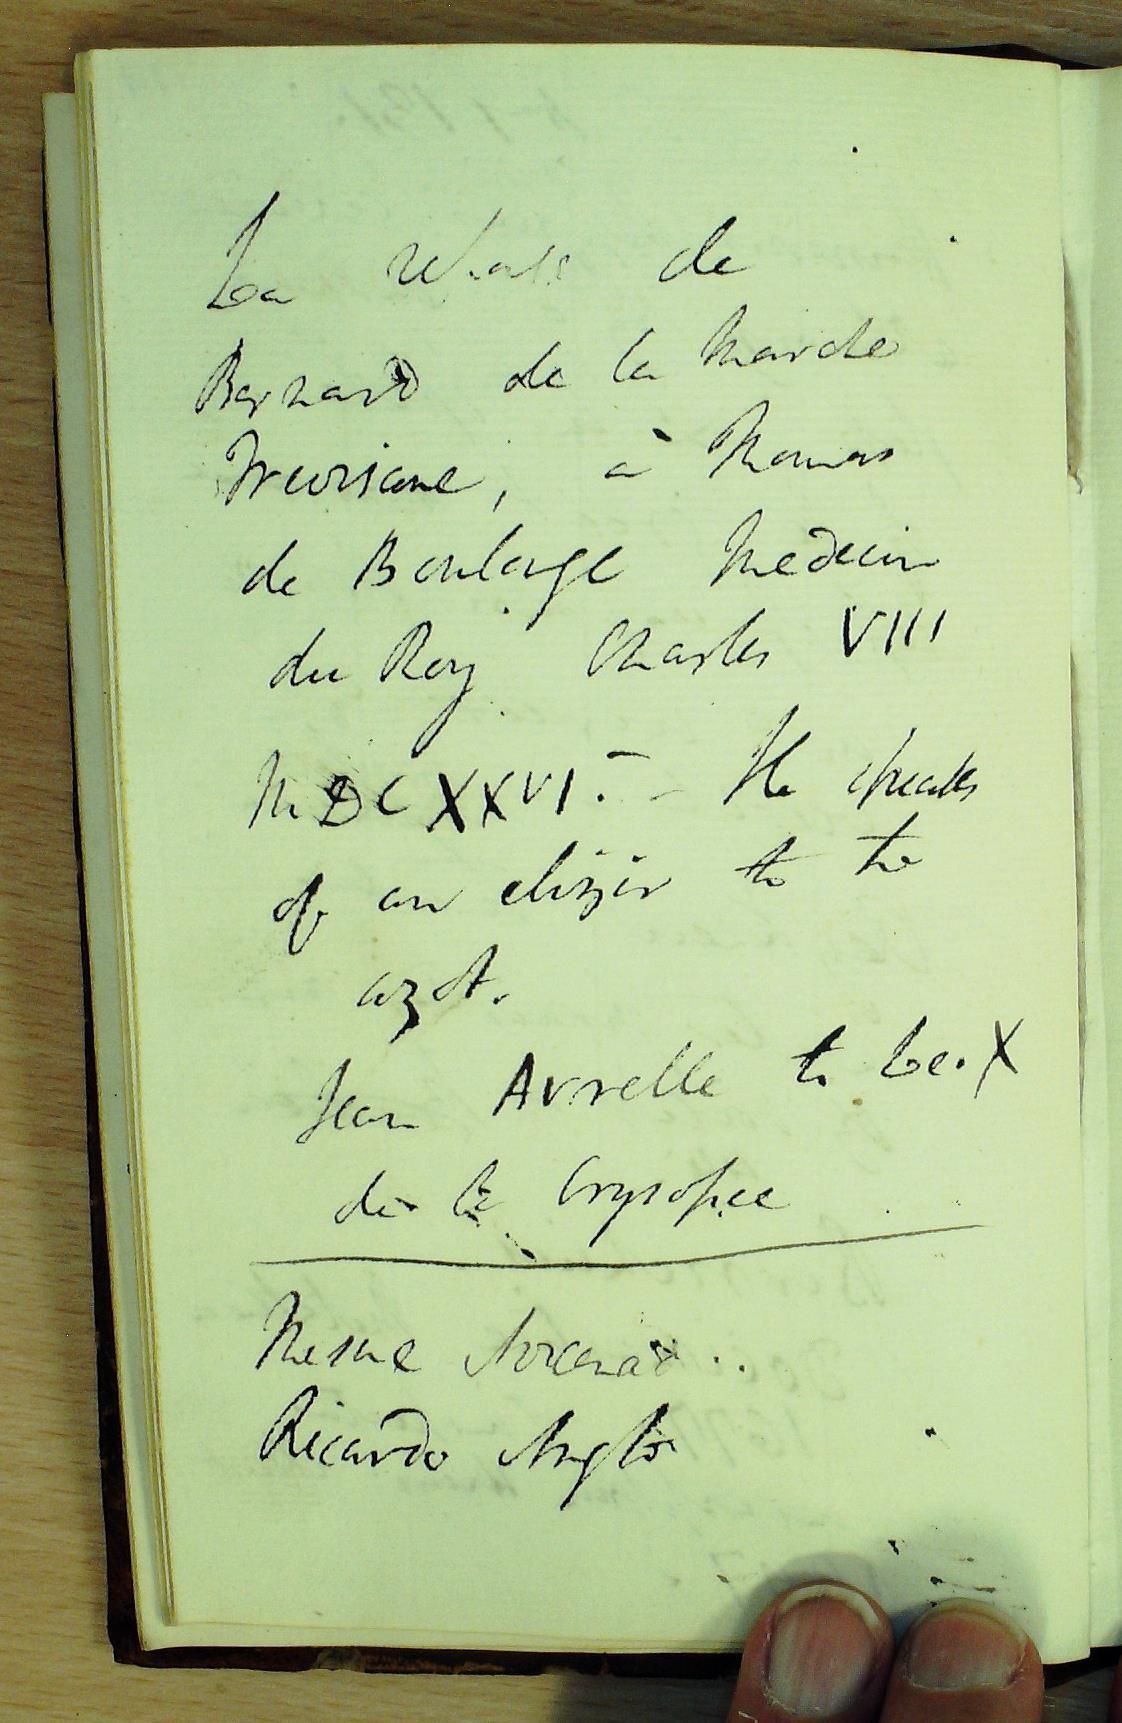 La de
Bernard de la Marche
Trevisane, à Thomas
de Boulogne Medecin
du Roy Charles VIII
MDCXXVI. - He speaks
of an elixir to the
azot.
Jean Aurelle to Leo X
de la Crysopee
Mesue
Ricardo Anglo